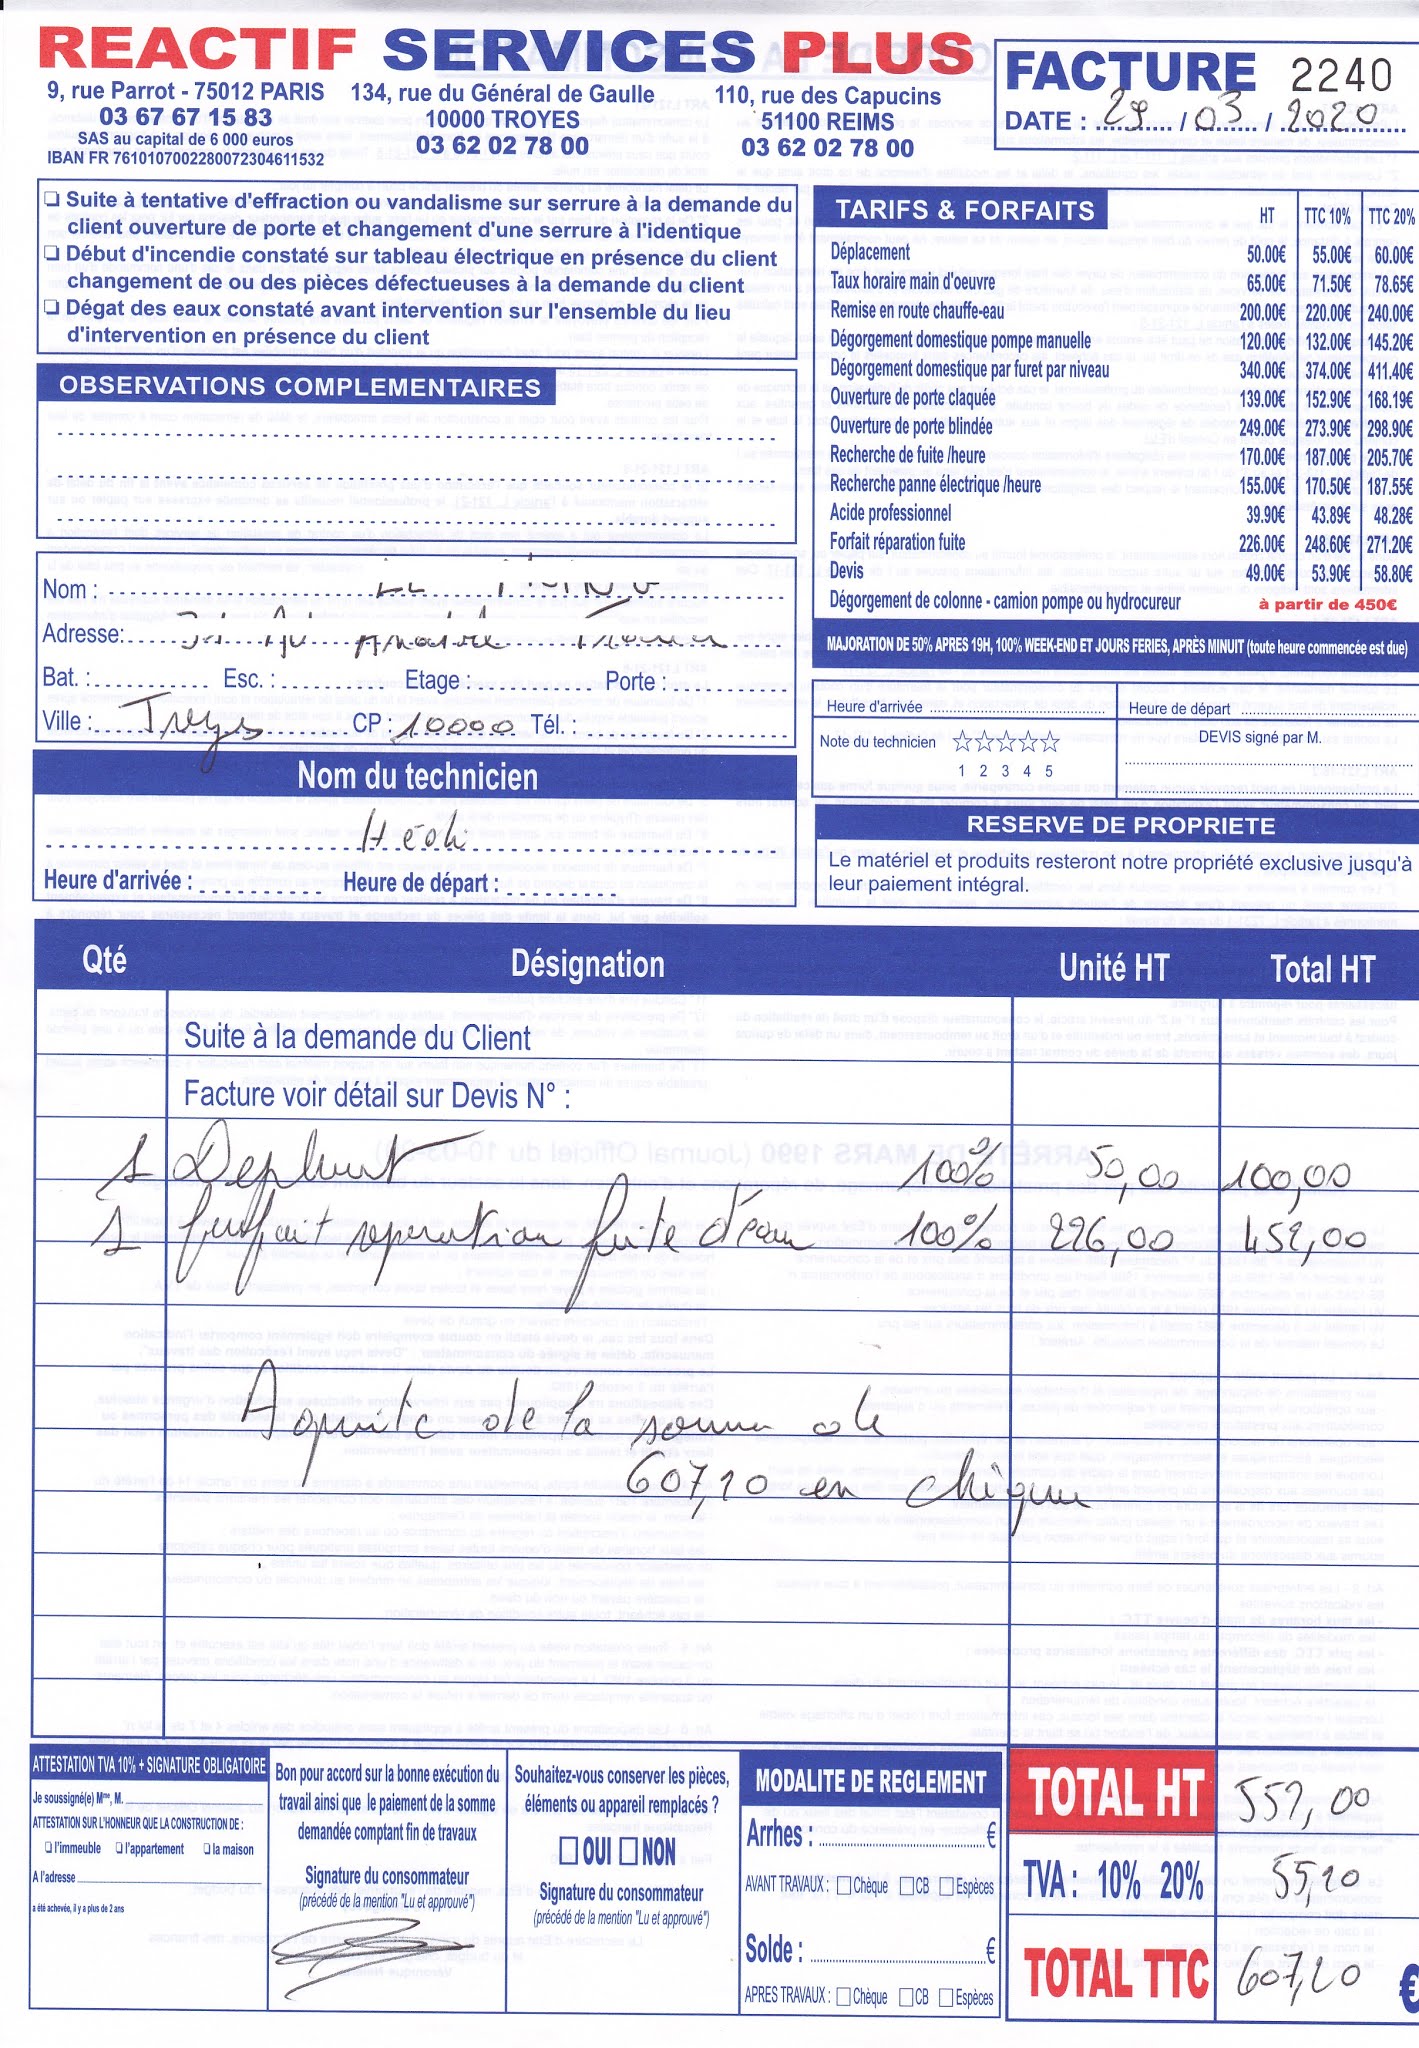 REACTIF SERVICES PLUS
9, rue Parrot - 75012 PARIS
03 67 67 15 83
SAS au capital de 6 000 euros
IBAN FR 7610107002280072304611532
134, rue du Général de Gaulle
10000 TROYES
03 62 02 78 00
110, rue des Capucins
51100 REIMS
03 62 02 78 00
FACTURE 2240
DATE : 29 / 03 / 2020
❑ Suite à tentative d'effraction ou vandalisme sur serrure à la demande du
client ouverture de porte et changement d'une serrure à l'identique
❑ Début d'incendie constaté sur tableau électrique en présence du client
changement de ou des pièces défectueuses à la demande du client
❑ Dégat des eaux constaté avant intervention sur l'ensemble du lieu
d'intervention en présence du client
OBSERVATIONS COMPLEMENTAIRES
Nom :
Adresse:
Bat. : Esc. : Etage : Porte :
Ville : Troyes CP : 10000 Tél. :
Nom du technicien
Hédi
Heure d'arrivée : Heure de départ :
TARIFS & FORFAITS HT TTC 10% TTC 20%
Déplacement 50.00€ 55.00€ 60.00€
Taux horaire main d'oeuvre 65.00€ 71.50€ 78.65€
Remise en route chauffe-eau 200.00€ 220.00€ 240.00€
Dégorgement domestique pompe manuelle 120.00€ 132.00€ 145.20€
Dégorgement domestique par furet par niveau 340.00€ 374.00€ 411.40€
Ouverture de porte claquée 139.00€ 152.90€ 168.19€
Ouverture de porte blindée 249.00€ 273.90€ 298.90€
Recherche de fuite /heure 170.00€ 187.00€ 205.70€
Recherche panne électrique /heure 155.00€ 170.50€ 187.55€
Acide professionnel 39.90€ 43.89€ 48.28€
Forfait réparation fuite 226.00€ 248.60€ 271.20€
Devis 49.00€ 53.90€ 58.80€
Dégorgement de colonne - camion pompe ou hydrocureur à partir de 450€
MAJORATION DE 50% APRES 19H, 100% WEEK-END ET JOURS FERIES, APRÈS MINUIT (toute heure commencée est due)
Heure d'arrivée Heure de départ
Note du technicien ☆☆☆☆☆ DEVIS signé par M.
1 2 3 4 5
RESERVE DE PROPRIETE
Le matériel et produits resteront notre propriété exclusive jusqu'à
leur paiement intégral.
Qté Désignation Unité HT Total HT
Suite à la demande du Client
Facture voir détail sur Devis N° :
1 100% 50,00 100,00
1 forfait reparation fuite d'eau 100% 226,00 452,00
Aquite de la somme de
607,20 en chèque
ATTESTATION TVA 10% + SIGNATURE OBLIGATOIRE
Je soussigné(e) Mme, M.
ATTESTATION SUR L'HONNEUR QUE LA CONSTRUCTION DE :
❑ l'immeuble ❑ l'appartement ❑ la maison
A l'adresse
a été achevée, il y a plus de 2 ans
Bon pour accord sur la bonne exécution du
travail ainsi que le paiement de la somme
demandée comptant fin de travaux
Signature du consommateur
(précédé de la mention "Lu et approuvé")
Souhaitez-vous conserver les pièces,
éléments ou appareil remplacés ?
☐ OUI ☐ NON
Signature du consommateur
(précédé de la mention "Lu et approuvé")
MODALITE DE REGLEMENT
Arrhes : €
AVANT TRAVAUX : ☐ Chèque ☐ CB ☐ Espèces
Solde : €
APRES TRAVAUX : ☐ Chèque ☐ CB ☐ Espèces
TOTAL HT 552,00
TVA : 10% 20% 55,20
TOTAL TTC 607,20 €